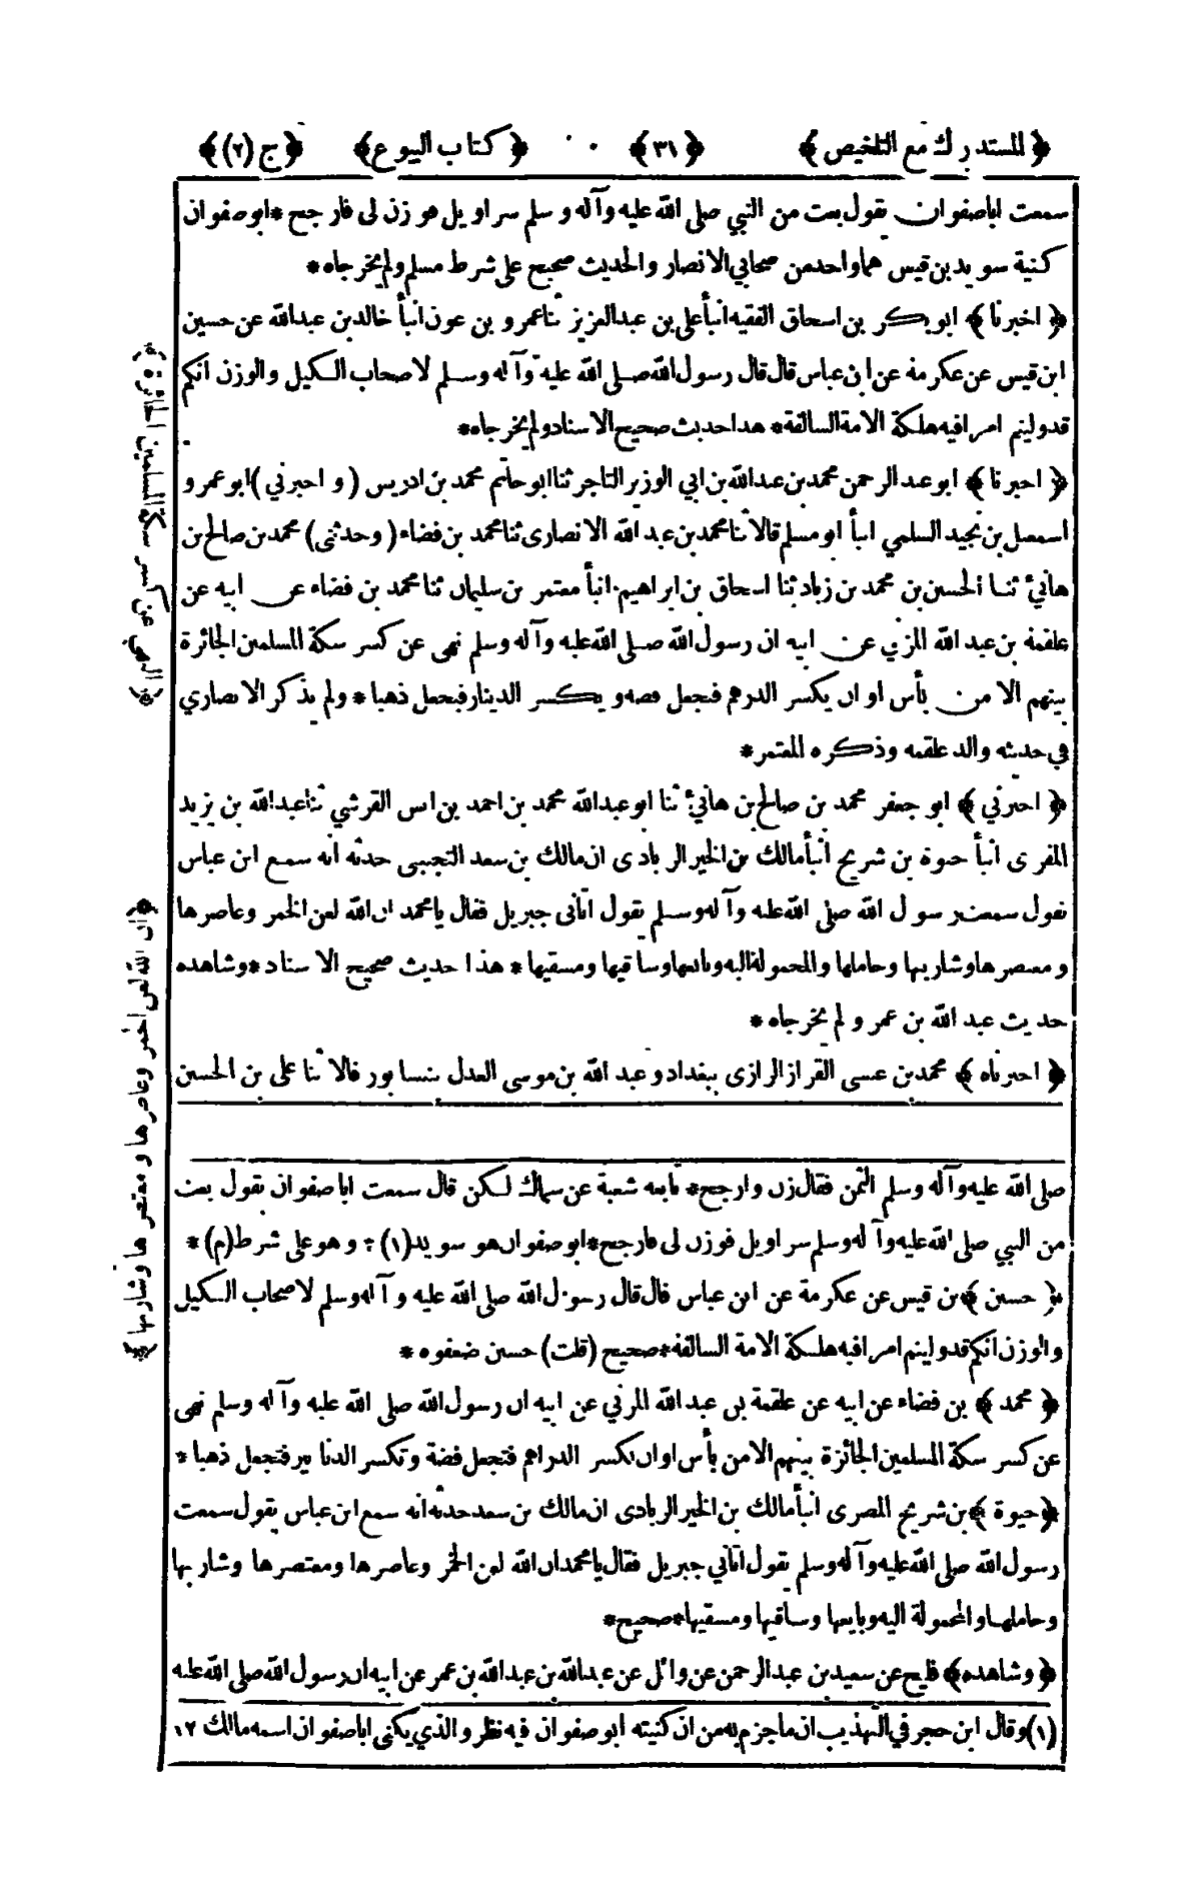 ﴿المستدرك مع التلخيص﴾ ﴿٣١﴾ ﴿كتاب البيوع﴾ ﴿ج (٢)﴾
سمعت اباصفوان يقول بعت من النبي صلى الله عليه وآله وسلم سراويل فوزن لى فارجح *ابوصفوان
كنية سويدبن قيس هماواحدمن صحابي الانصار والحديث صحيح على شرط مسلم ولم يخرجاه*
﴿اخبرنا﴾ ابوبكر بن اسحاق الفقيه انبأ على بن عبدالعزيز ثنا عمرو بن عون انبأ خالدبن عبدالله عن حسين
ابن قيس عن عكرمة عن ابن عباس قال قال رسول الله صلى الله عليه وآله وسلم لاصحاب الكيل والوزن انكم
قدوليتم امرا فيه هلكة الامة السالفة* هذا حديث صحيح الاسناد ولم يخرجاه*
﴿اخبرنا﴾ ابوعبد الرحمن محمد بن عبدالله بن ابي الوزير التاجر ثنا ابوحاتم محمد بن ادريس (و اخبرني) ابوعمرو
اسمعيل بن نجيد السلمي انبأ ابومسلم قالا ثنا محمد بن عبد الله الانصارى ثنا محمد بن فضاء (وحدثنى) محمد بن صالح بن
هانئ ثنا الحسين بن محمد بن زياد ثنا اسحاق بن ابراهيم انبأ معتمر بن سليمان ثنا محمد بن فضاء عن ابيه عن
علقمة بن عبد الله المزني عن ابيه ان رسول الله صلى الله عليه وآله وسلم نهى عن كسر سكة المسلمين الجائزة
بينهم الا من بأس او ان يكسر الدرهم فتجعل فضة ويكسر الدينار فيجعل ذهبا * ولم يذكر الانصاري
في حديثه والد علقمة وذكره المعتمر*
﴿اخبرني﴾ ابو جعفر محمد بن صالح بن هانئ ثنا ابوعبدالله محمد بن احمد بن انس القرشي ثنا عبدالله بن يزيد
المقرى انبأ حيوة بن شريح انبأ مالك بن الخير الزبادى ان مالك بن سعد التجيبى حدثه انه سمع ابن عباس
يقول سمعت رسول الله صلى الله عليه وآله وسلم يقول اتانى جبريل فقال يامحمد ان الله لعن الخمر وعاصرها
ومعتصرها وشاربها وحاملها والمحمولة اليه وبايعها وساقيها ومسقيها * هذا حديث صحيح الاسناد *وشاهده
حديث عبد الله بن عمر و لم يخرجاه *
﴿اخبرناه﴾ محمد بن عيسى القراز الرازى ببغداد و عبد الله بن موسى العدل بنيسابور قالا ثنا على بن الحسين
صلى الله عليه وآله وسلم الثمن فقال زن وارجح* تابعه شعبة عن سماك لكن قال سمعت اباصفوان يقول بعت
من النبي صلى الله عليه وآله وسلم سراويل فوزن لى فارجح*ابوصفوان هو سويد(١) ؛ وهو على شرط (م)*
﴿حسين﴾ بن قيس عن عكرمة عن ابن عباس قال قال رسول الله صلى الله عليه وآله وسلم لاصحاب الكيل
والوزن انكم قدوليتم امرا فيه هلكة الامة السالفة*صحيح (قلت) حسين ضعفوه *
﴿محمد﴾ بن فضاء عن ابيه عن علقمة بن عبد الله المزني عن ابيه ان رسول الله صلى الله عليه وآله وسلم نهى
عن كسر سكة المسلمين الجائزة بينهم الامن بأس اوان تكسر الدراهم فتجعل فضة وتكسر الدنانير فتجعل ذهبا *
﴿حيوة﴾ بن شريح المصرى انبأ مالك بن الخير الزبادى ان مالك بن سعد حدثه انه سمع ابن عباس يقول سمعت
رسول الله صلى الله عليه وآله وسلم يقول اتاني جبريل فقال يامحمد ان الله لعن الخمر وعاصرها ومعتصرها وشاربها
وحاملها والمحمولة اليه وبايعها وساقيها ومسقيها*صحيح*
﴿وشاهده﴾ فليح عن سعيد بن عبد الرحمن عن وائل عن عبدالله بن عبدالله بن عمر عن ابيه ان رسول الله صلى الله عليه
(١) وقال ابن حجر في التهذيب ان ماجزم به من ان كنيته ابوصفوان فيه نظر والذي يكنى اباصفوان اسمه مالك ١٢
﴿النهي عن كسر سكة المسلمين الجائزة﴾
﴿ان الله لعن الخمر وعاصرها ومعتصرها وشاربها﴾